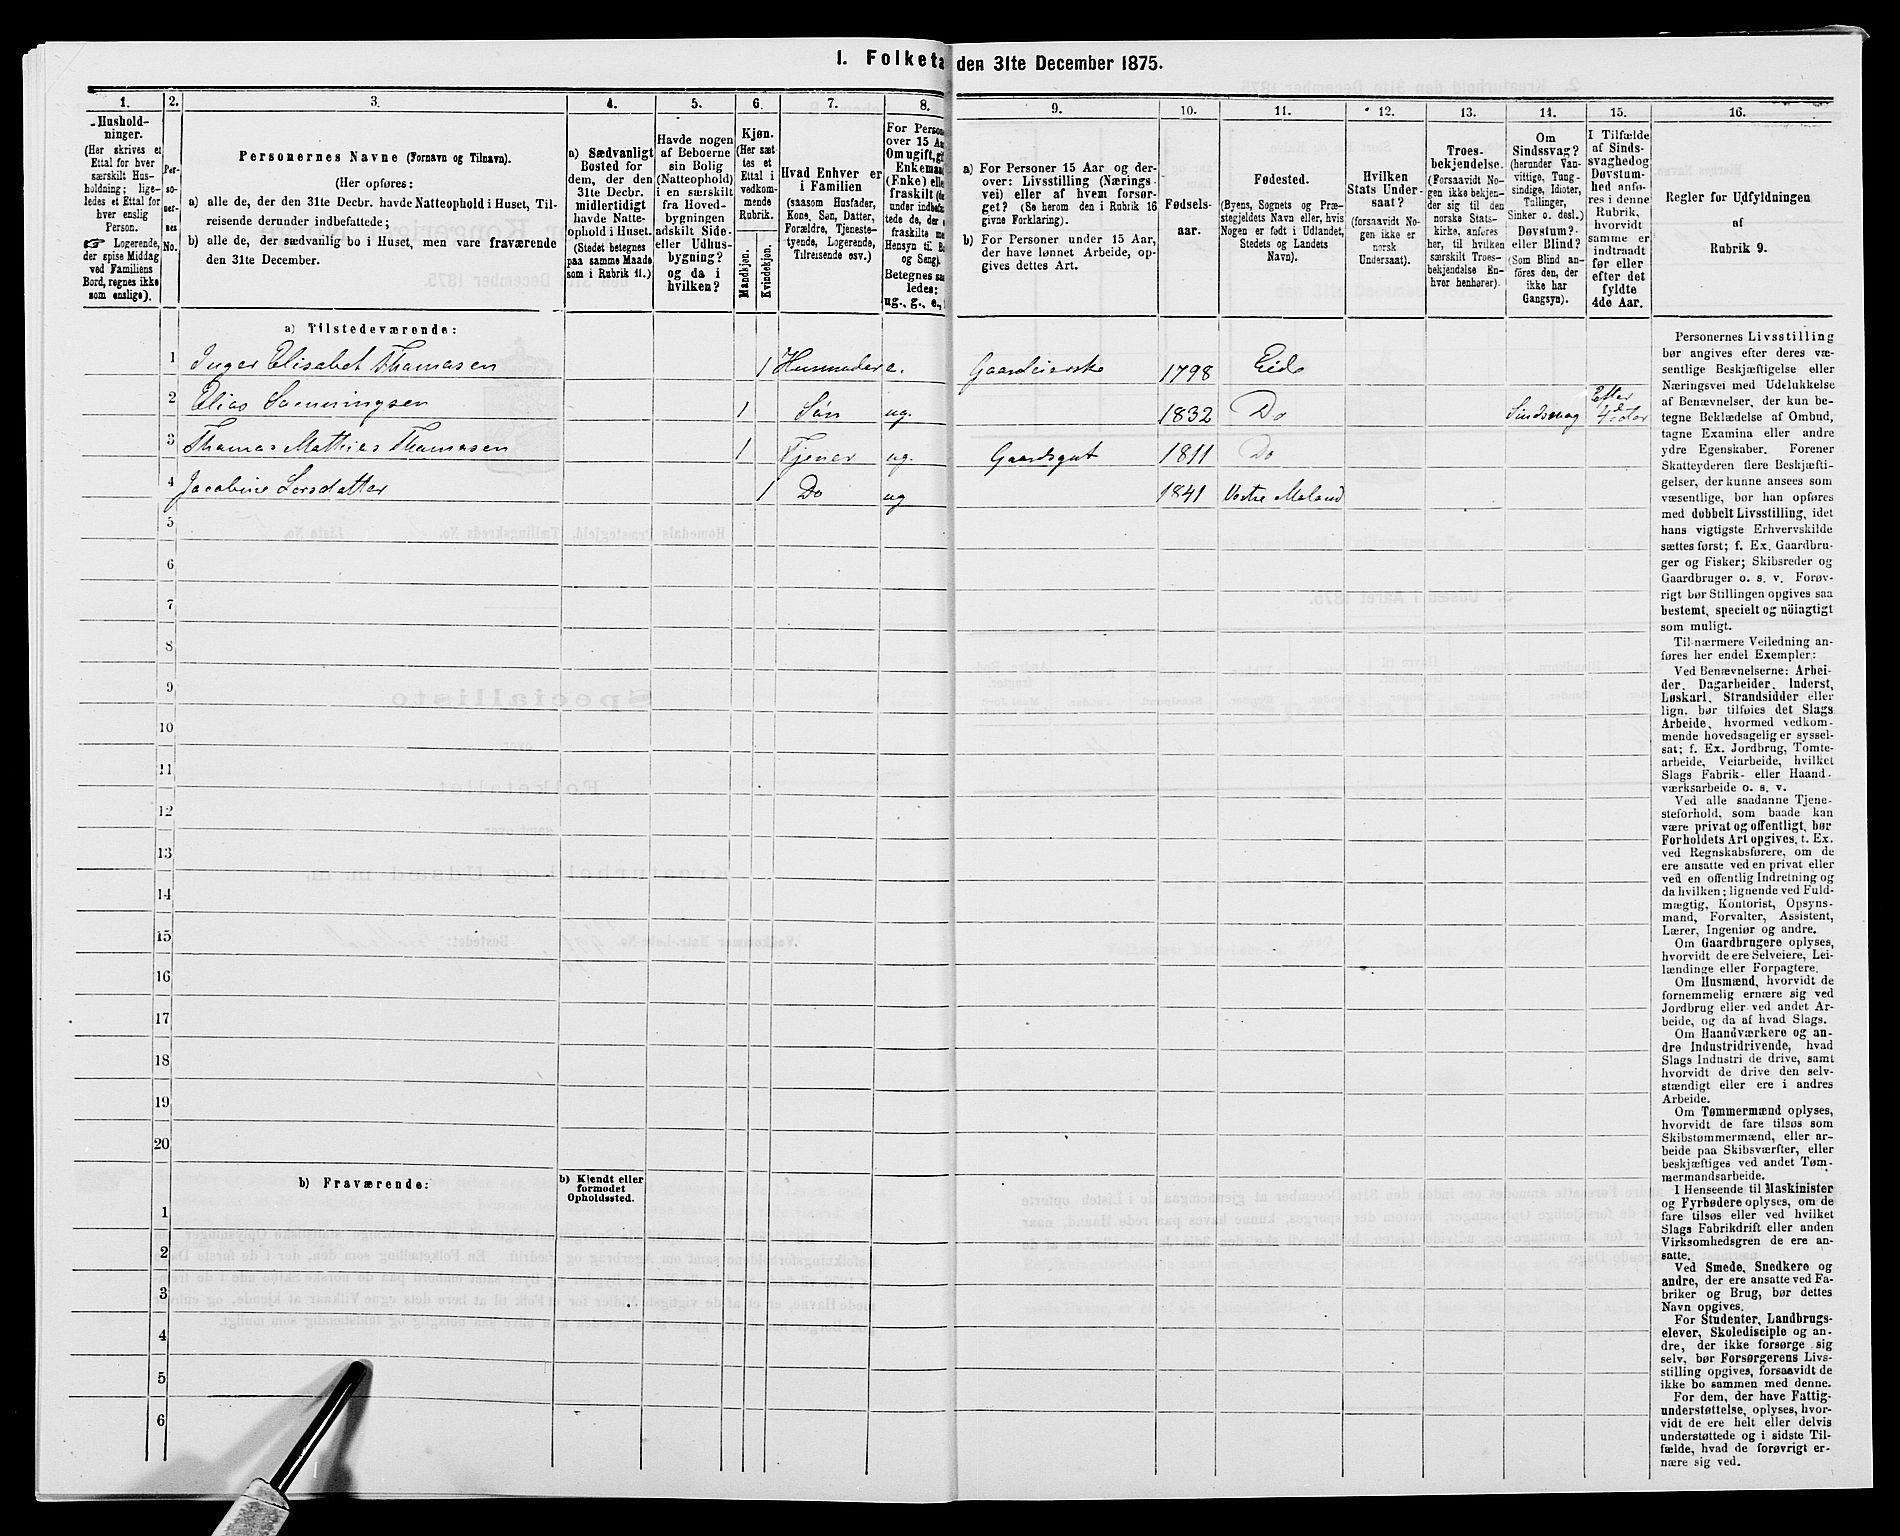 I. Folketa den 31te December 1875.
1. 2. 3. 4. 5. 6. 7. 8. 9. 10. 11. 12. 13. 14. 15. 16.
Hushold-
ninger.
(Her skrives et
Ettal for hver
særskilt Hus-
holdning; lige-
ledes et Ettal for
hver enslig
Person.
☞ Logerende,
der spise Middag
ved Familiens
Bord, regnes ikke
som enslige).
Per-
so-
ner-
nes
No.
Personernes Navne (Fornavn og Tilnavn).
(Her opføres:
a) alle de, der den 31te Decbr. havde Natteophold i Huset, Til-
reisende derunder indbefattede;
b) alle de, der sædvanlig bo i Huset, men vare fraværende
den 31te December.
a) Sædvanligt
Bosted for
dem, der den
31te Decbr.
midlertidigt
havde Natte-
ophold i Huset.
(Stedet betegnes
paa samme Maade
som i Rubrik 11.)
Havde nogen
af Beboerne
sin Bolig
(Natteophold)
i en særskilt
fra Hoved-
bygningen
adskilt Side-
eller Udhus-
bygning?
og da i
hvilken?
Kjøn.
(Her sæt-
tes et
Ettal i
vedkom-
mende
Rubrik.
Mandkjøn.
Kvindekjøn.
Hvad Enhver er
i Familien
(saasom Husfader,
Kone, Søn, Datter,
Forældre, Tjeneste-
tyende, Logerende,
Tilreisende osv.)
For Persone
over 15 Aa
Om ugift, gi
Enkeman
(Enke) elle
fraskilt (de
under indbef
tede de, der e
fraskilte me
Hensyn til Bo
og Seng).
Betegnes saa
ledes:
ug., g., e.,
a) For Personer 15 Aar og der-
over: Livsstilling (Nærings-
vei) eller af hvem forsør-
get? (Se herom den i Rubrik 16
givne Forklaring).
b) For Personer under 15 Aar,
der have lønnet Arbeide, op-
gives dettes Art.
Fødsels-
aar.
Fødested.
(Byens, Sognets og Præ-
stegjeldets Navn eller, hvis
Nogen er født i Udlandet,
Stedets og Landets
Navn).
Hvilken
Stats Under-
saat?
(forsaavidt No-
gen ikke er
norsk
Undersaat).
Troes-
bekjendelse.
(Forsaavidt No-
gen ikke bekjen-
der sig til den
norske Stats-
kirke, anføres
her, til hvilken
særskilt Troes-
bekjendelse En-
hver henhører).
Om
Sindssvag?
(herunder Van-
vittige, Tung-
sindige, Idioter,
Tullinger,
Sinker o. desl.)
Døvstum?
eller Blind?
(Som Blind an-
føres den, der
ikke har
Gangsyn).
I Tilfælde
af Sinds-
svaghed og
Døvstum-
hed anfø-
res i denne
Rubrik,
hvorvidt
samme er
indtraadt
før eller
efter det
fyldte
4de Aar.
Regler for Udfyldningen
af
Rubrik 9.
a) Tilstedeværende:
1 Inger Elisabet Thomasen 1 Husmoder e. Gaardeierske 1798 Eide
2 Elias Sørenningsen 1 Søn ug. 1832 Do Sindssvag Efter 4de Aar
3 Thomas Mathias Thomasen 1 Tjener ug. Gaardsgut 1811 Do
4 Jacobine Larsdatter 1 Do ug 1841 Vestre Moland
5
6
7
8
9
10
11
12
13
14
15
16
17
18
19
20
b) Fraværende:
b) Kjendt eller
formodet
Opholdssted.
1
2
3
4
5
6
Personernes Livsstilling
bør angives efter deres væ-
sentlige Beskjæftigelse eller
Næringsvei med Udelukkelse
af Benævnelser, der kun be-
tegne Beklædelse af Ombud,
tagne Examina eller andre
ydre Egenskaber. Forener
Skatteyderen flere Beskjæfti-
gelser, der kunne ansees som
væsentlige, bør han opføres
med dobbelt Livsstilling, idet
hans vigtigste Erhvervskilde
sættes først; f. Ex. Gaardbru-
ger og Fisker; Skibsreder og
Gaardbruger o. s. v. Forøv-
rigt bør Stillingen opgives saa
bestemt, specielt og nöiagtigt
som muligt.
Til nærmere Veiledning an-
føres her endel Exempler:
Ved Benævnelserne: Arbei-
der, Dagarbeider, Inderst,
Løskarl, Strandsidder eller
lign. bør tilføies det Slags
Arbeide, hvormed vedkom-
mende hovedsagelig er syssel-
sat; f. Ex. Jordbrug, Tomte-
arbeide, Veiarbeide, hvilket
Slags Fabrik- eller Haand-
værksarbeide o. s. v.
Ved alle saadanne Tjene-
steforhold, som baade kan
være privat og offentligt, bør
Forholdets Art opgives, t. Ex.
ved Regnskabsførere, om de
ere ansatte ved en privat eller
ved en offentlig Indretning og
da hvilken; lignende ved Fuld-
mægtig, Kontorist, Opsyns-
mand, Forvalter, Assistent,
Lærer, Ingeniør og andre.
Om Gaardbrugere oplyses,
hvorvidt de ere Selveiere, Lei-
lændinge eller Forpagtere.
Om Husmænd, hvorvidt de
fornemmelig ernære sig ved
Jordbrug eller ved andet Ar-
beide, og da af hvad Slags.
Om Haandværkere og an-
dre Industridrivende, hvad
Slags Industri de drive, samt
hvorvidt de drive den selv-
stændigt eller ere i andres
Arbeide.
Om Tømmermænd oplyses,
hvorvidt de fare tilsøs som
Skibstømmermænd, eller ar-
beide paa Skibsværfter, eller
beskjæftiges ved andet Tøm-
mermandsarbeide.
I Henseende til Maskinister
og Fyrbødere oplyses, om de
fare tilsøs eller ved hvilket
Slags Fabrikdrift eller anden
Virksomhedsgren de ere an-
satte.
Ved Smede, Snedkere og
andre, der ere ansatte ved Fa-
briker og Brug, bør dettes
Navn opgives.
For Studenter, Landbrugs-
elever, Skoledisciple og an-
dre, der ikke forsørge sig
selv, bør Forsørgerens Livs-
stilling opgives, forsaavidt de
ikke bo sammen med denne.
For dem, der have Fattig-
understøttelse, oplyses, hvor-
vidt de ere helt eller delvis
understøttede og i sidste Til-
fælde, hvad de forøvrigt er-
nære sig ved.